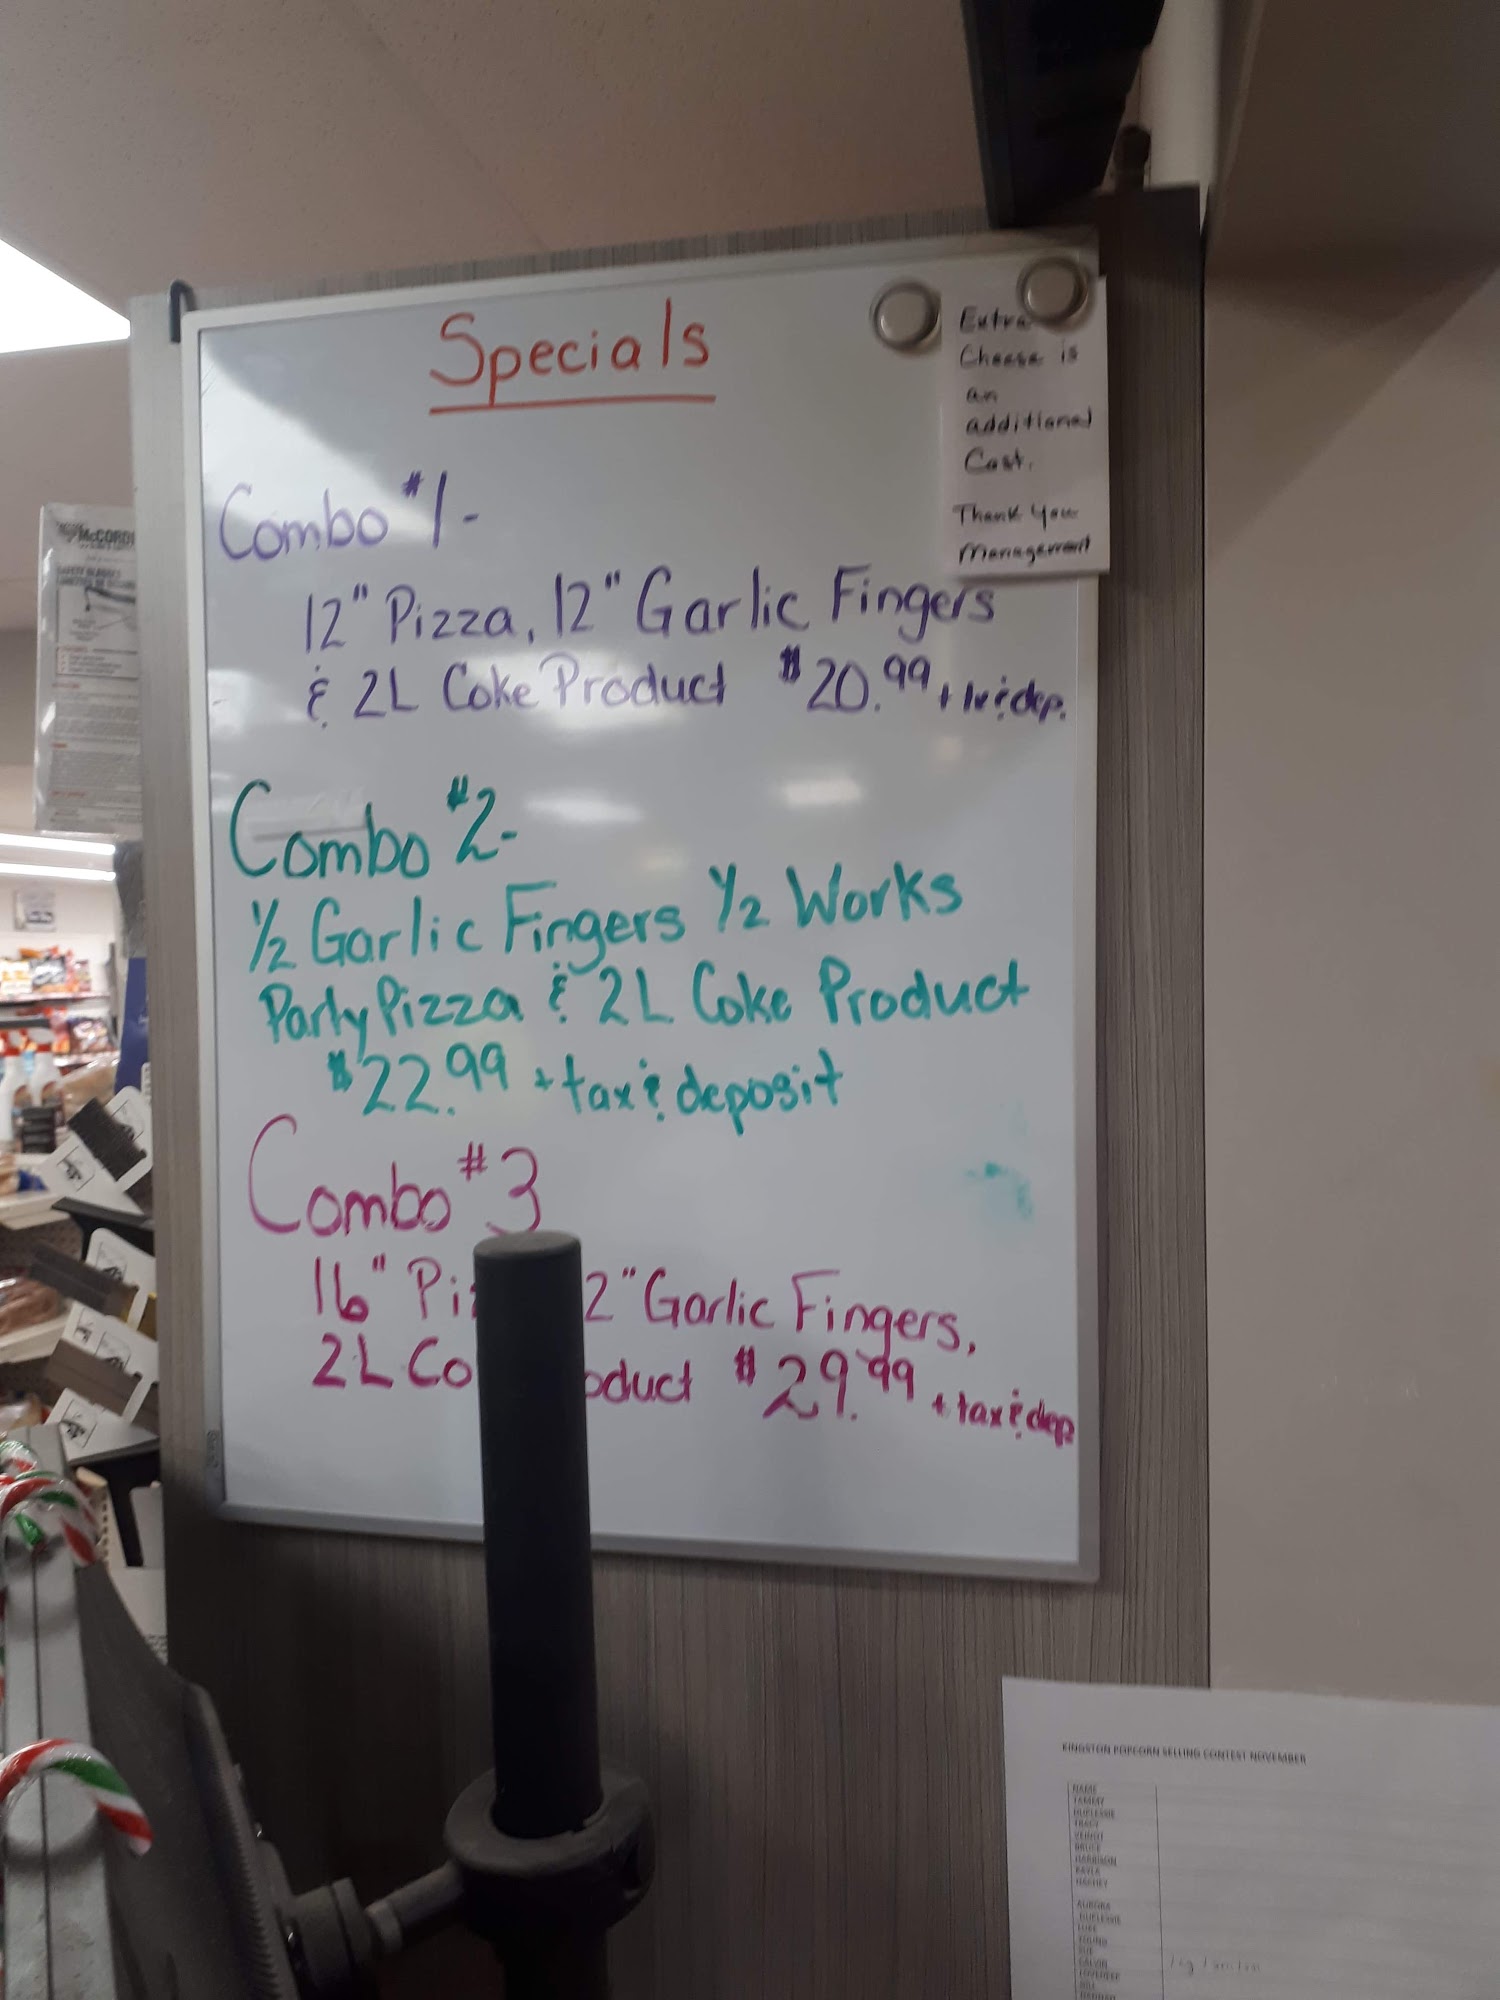 Specials
Extra
Cheese is
an
additional
Cost.
Thank You
Management
Combo #1-
12" Pizza, 12" Garlic Fingers
& 2L Coke Product $20.99 + tx & dep.
Combo #2-
1/2 Garlic Fingers 1/2 Works
Party Pizza & 2L Coke Product
$22.99 + tax & deposit
Combo #3
16" Pi 2" Garlic Fingers,
2L Co oduct $29.99 + tax & dep
McCORD
KINGSTON POPCORN SELLING CONTEST NOVEMBER
NAME
TAMMY
DUPLESSIE
TRACY
VEINOT
BRUCE
HARRISON
KAYLA
AURORA
DUPLESSIE
LUKE
YOUNG
SUE
CALVIN
HANNAH